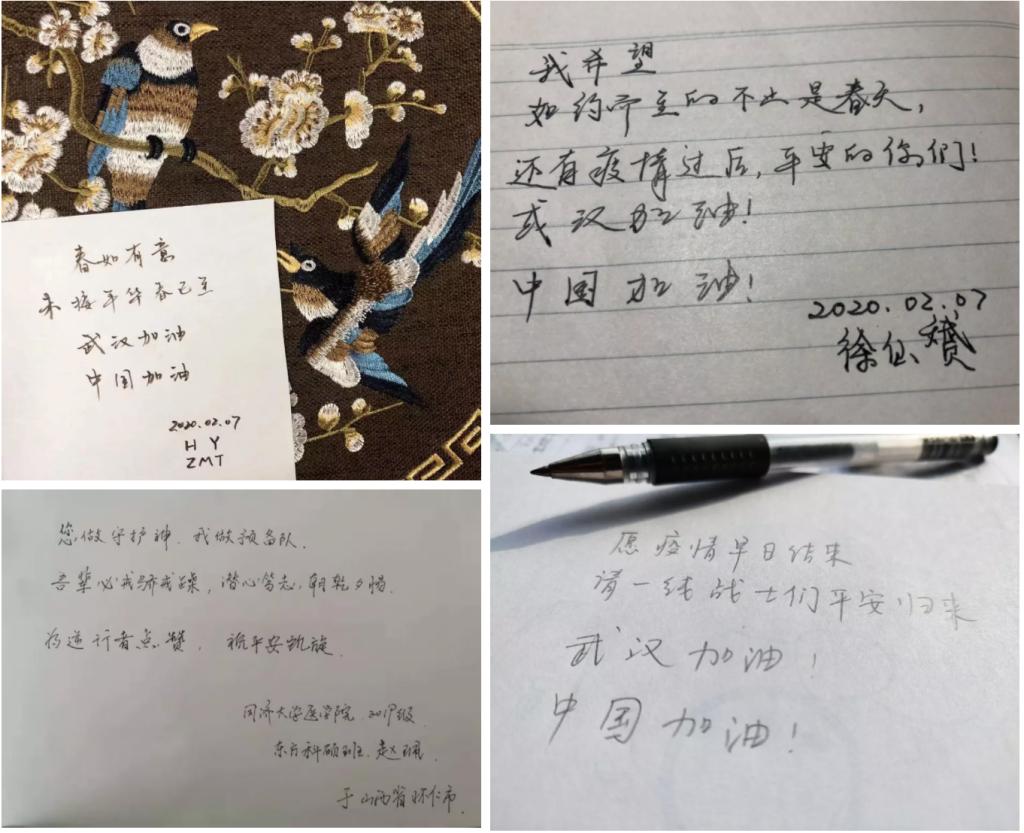 春如有意
未接年华春已至
武汉加油
中国加油
2020.02.07
H Y
ZMT
我希望
如约而至的不止是春天,
还有疫情过后,平安的你们!
武汉加油!
中国加油!
2020.02.07
徐
您做守护神、我做预备队、
吾辈必戒骄戒躁,潜心笃志,朝乾夕惕.
为逆行者点赞, 祝平安凯旋.
同济大学医学院 2019级
东方科硕班 赵
于山西省怀仁市.
愿疫情早日结束
请一线战士们平安归来
武汉加油!
中国加油!